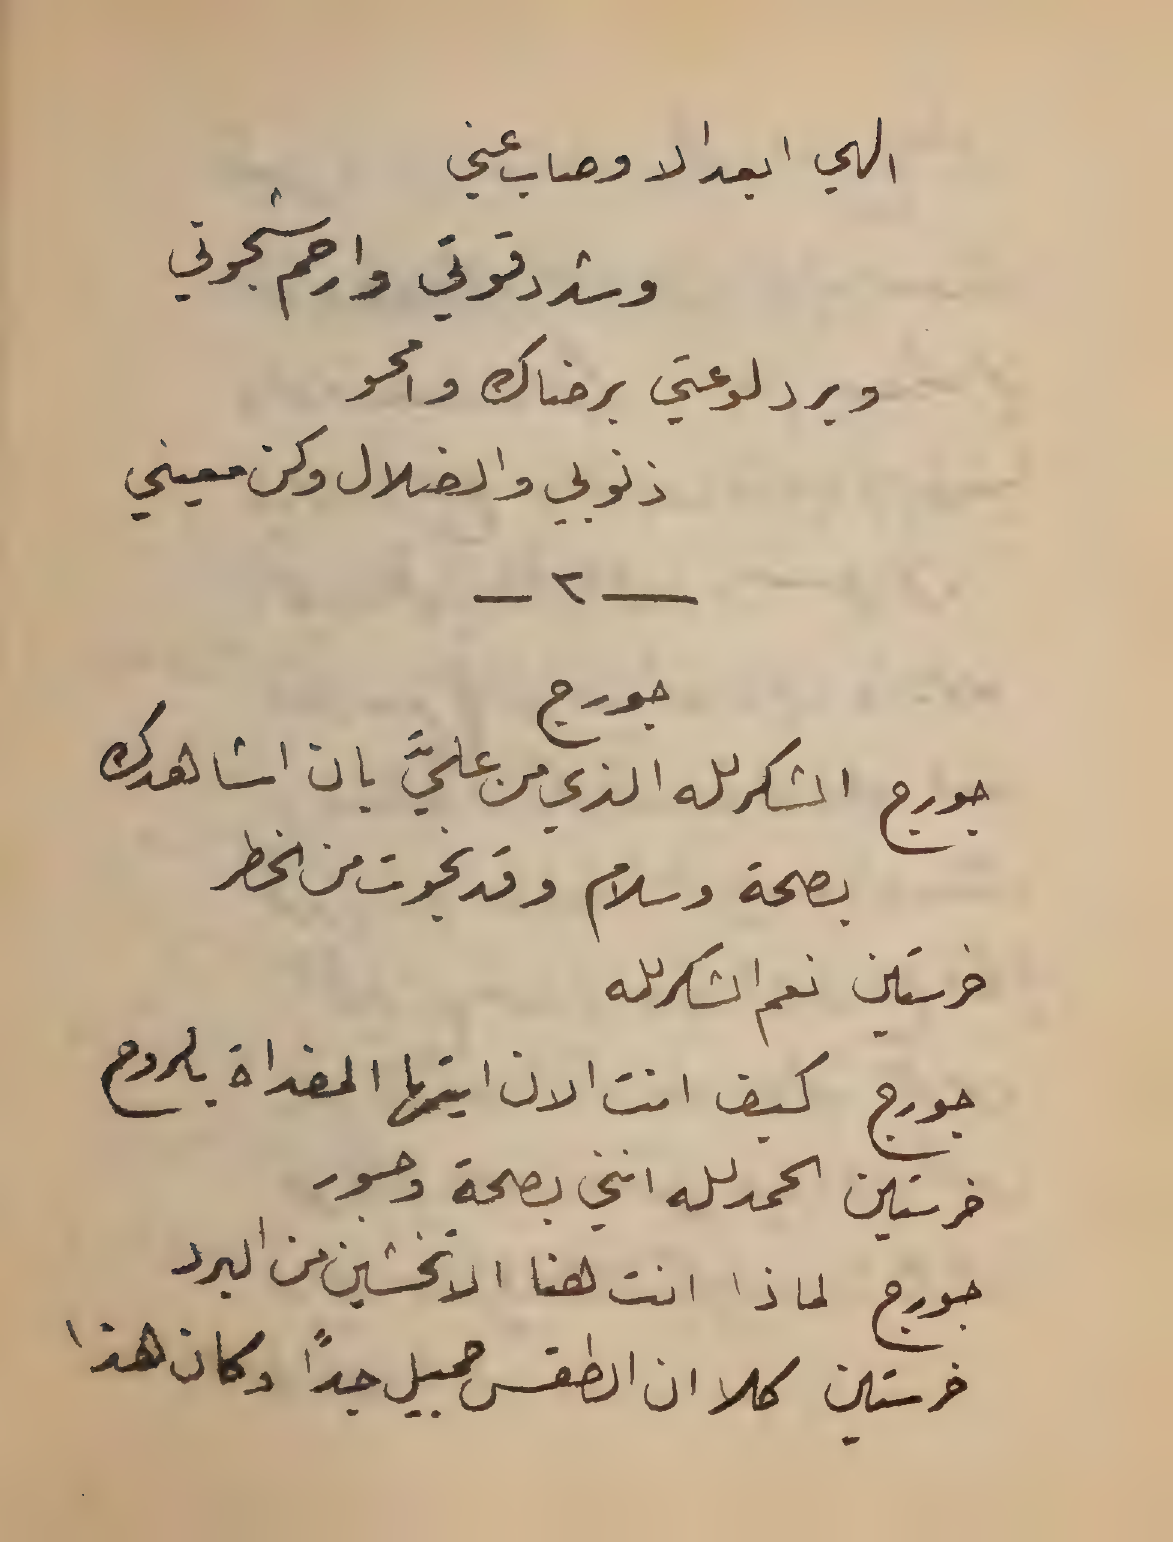 الهي ابعد الاوصاب عني
وشدد قوتي وارحم شجوتي
وبرد لوعتي برضاك وامحو
ذنوبي والضلال وكن معيني
— ٢ —
جورج
جورج الشكر لله الذي من عليَّ بان اشاهدك
بصحة وسلام وقد نجوت من الخطر
خرستين نعم الشكر لله
جورج كيف انت الان ايتها المفداة بالروح
خرستين الحمد لله انني بصحة وحبور
جورج لماذا انت هنا الا تخشين من البرد
خرستين كلا ان الطقس جميل جداً وكان هذا